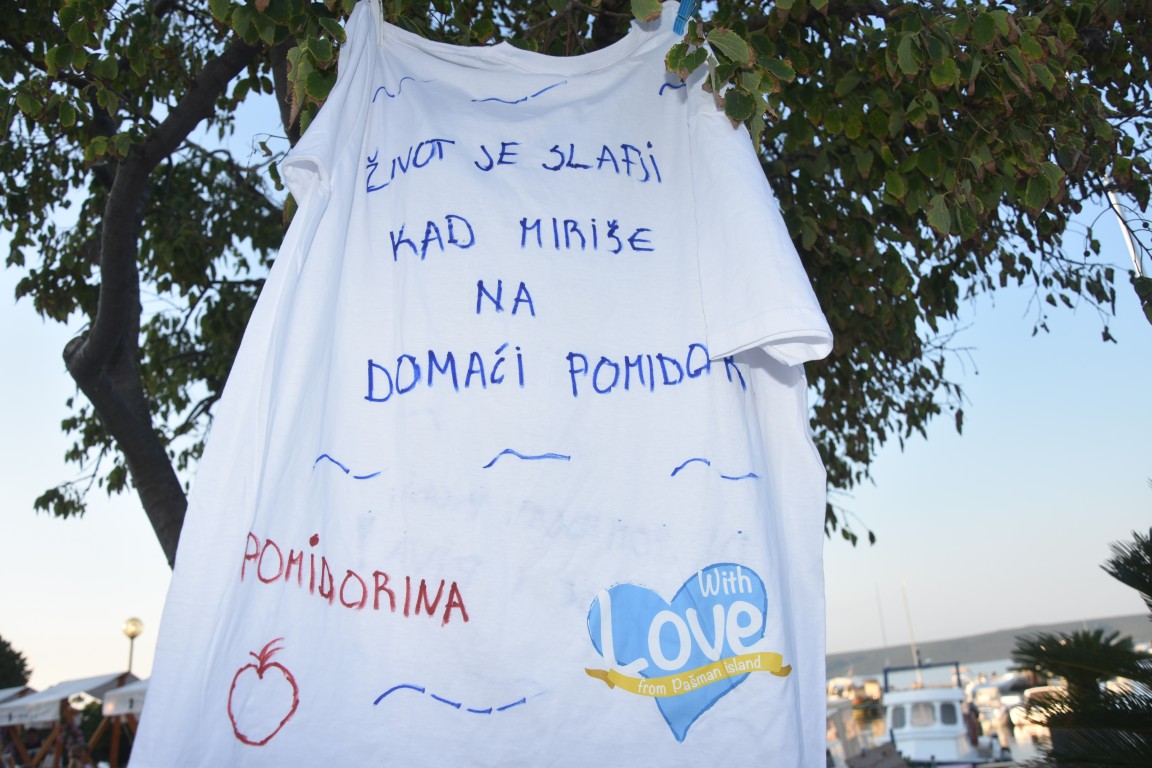 ŽIVOT JE SLAFJI
KAD MIRIŠE
NA
DOMAĆI POMIDOR
POMIDORINA
With
Love
from Pašman Island